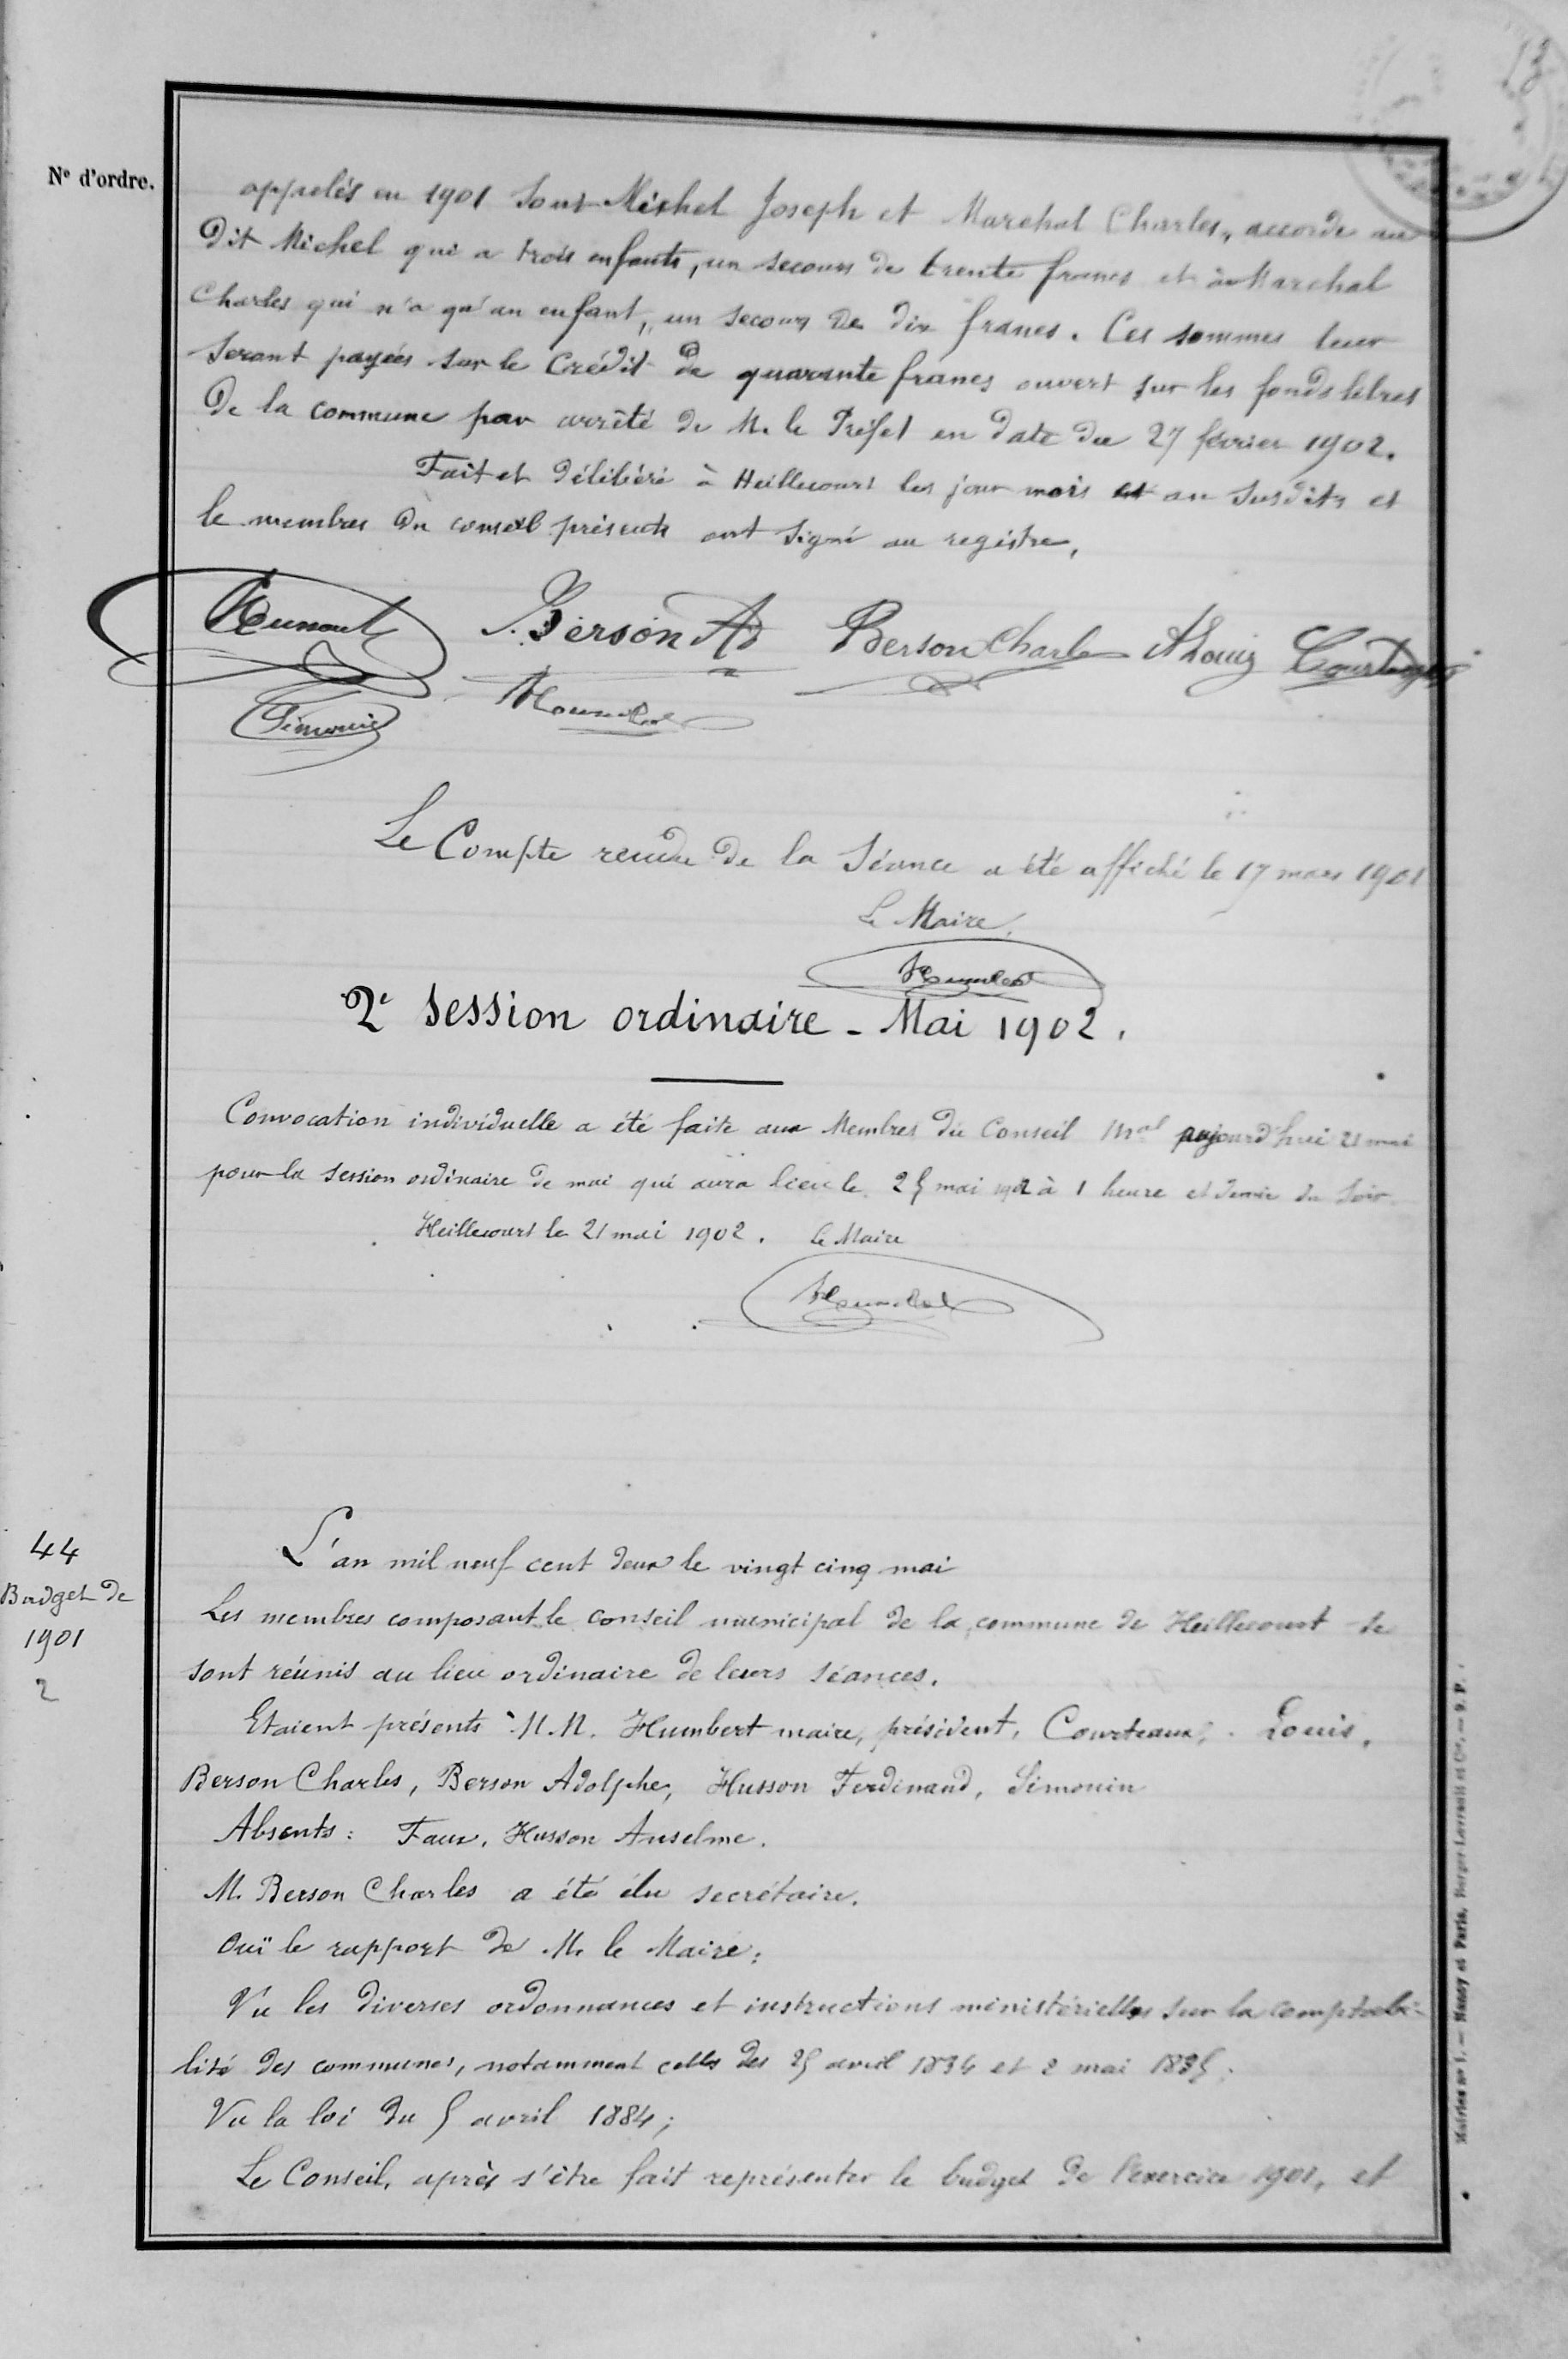 13
N° d'ordre.
appelés en 1901 sont Michel Joseph et Marchal Charles, accorde au
dit Michel qui a trois enfants, un secours de trente francs et à Marchal
Charles qui n'a qu'un enfant, un secours de dix francs. Ces sommes leur
seront payées sur le crédit de quarante francs ouvert sur les fonds libres
de la commune par arrêté de M. le Préfet en date du 27 février 1902.
Fait et délibéré à Heillecourt les jour mois et an susdits et
le membres du conseil présents ont signé au registre,
Berson Ad Berson Charles A Louis Courteaux
Simonin Humbert
Le Compte rendu de la Séance a été affiché le 17 mars 1901
Le Maire,
Humbert
2e session ordinaire - Mai 1902.
Convocation individuelle a été faite aux Membres du Conseil Mal aujourd'hui 21 mai
pour la session ordinaire de mai qui aura lieu le 25 mai 1902 à 1 heure et demie du soir
Heillecourt le 21 mai 1902. Le Maire
Humbert
44
Budget de
1901
2
L'an mil neuf cent deux le vingt cinq mai
Les membres composant le conseil municipal de la commune de Heillecourt se
sont réunis au lieu ordinaire de leurs séances.
Etaient présents M.M. Humbert maire, président, Courteaux, Louis,
Berson Charles, Berson Adolphe, Husson Ferdinand, Simonin
Absents : Faux, Husson Anselme.
M. Berson Charles a été élu secrétaire.
Ouï le rapport de M. le Maire;
Vu les diverses ordonnances et instructions ministérielles sur la comptabi-
lité des communes, notamment celles des 25 avril 1834 et 2 mai 1835;
Vu la loi du 5 avril 1884;
Le Conseil, après s'être fait représenter le budget de l'exercice 1901, et
Mairies n° 1. — Nancy et Paris, Berger-Levrault et Cie. —